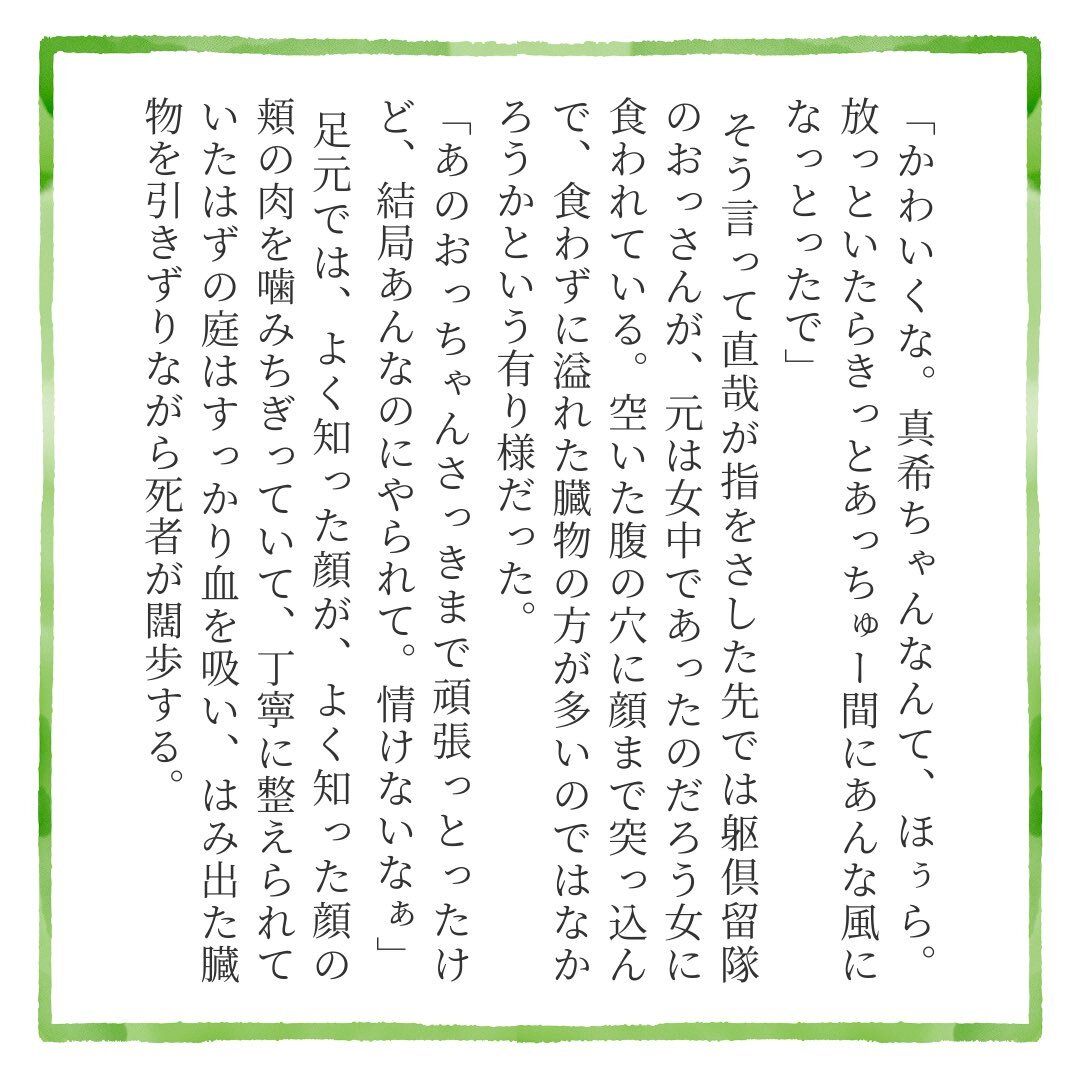 「かわいくな。真希ちゃんなんて、ほぅら。
放っといたらきっとあっちゅー間にあんな風に
なっとったで」
そう言って直哉が指をさした先では躯倶留隊
のおっさんが、元は女中であったのだろう女に
食われている。空いた腹の穴に顔まで突っ込ん
で、食わずに溢れた臓物の方が多いのではなか
ろうかという有り様だった。
「あのおっちゃんさっきまで頑張っとったけ
ど、結局あんなのにやられて。情けないなぁ」
足元では、よく知った顔が、よく知った顔の
頬の肉を噛みちぎっていて、丁寧に整えられて
いたはずの庭はすっかり血を吸い、はみ出た臓
物を引きずりながら死者が闊歩する。